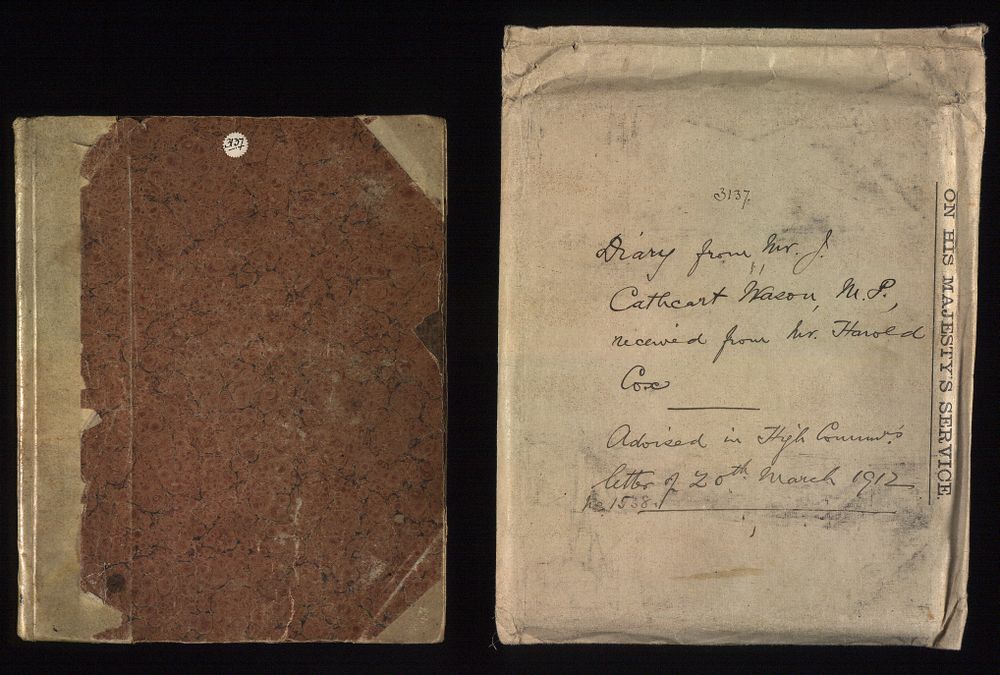 3137
3137.
Diary from Mr. J.
Cathcart Wason, M.P.,
received from Mr. Harold
Cox
Advised in High Commrs
letter of 20th March 1912
No 1538.
ON HIS MAJESTY'S SERVICE.